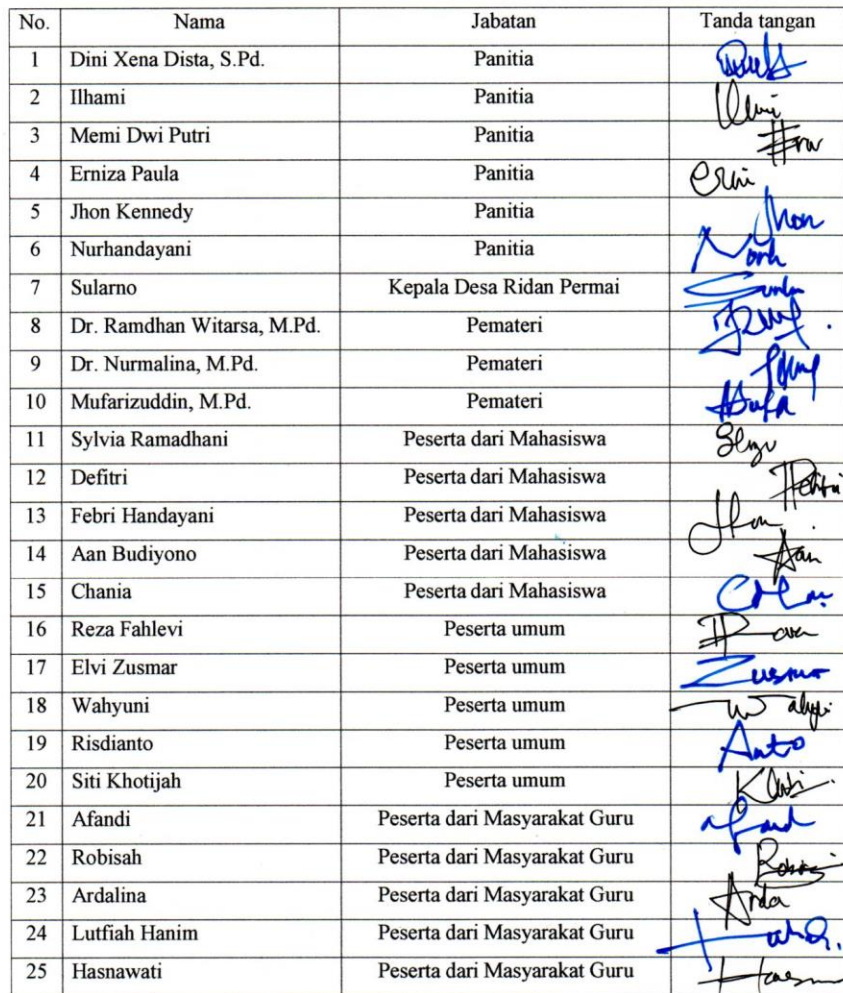 No. Nama Jabatan Tanda tangan
1 Dini Xena Dista, S.Pd. Panitia
2 Ilhami Panitia
3 Memi Dwi Putri Panitia
4 Erniza Paula Panitia
5 Jhon Kennedy Panitia Jhon
6 Nurhandayani Panitia
7 Sularno Kepala Desa Ridan Permai
8 Dr. Ramdhan Witarsa, M.Pd. Pemateri
9 Dr. Nurmalina, M.Pd. Pemateri
10 Mufarizuddin, M.Pd. Pemateri
11 Sylvia Ramadhani Peserta dari Mahasiswa
12 Defitri Peserta dari Mahasiswa
13 Febri Handayani Peserta dari Mahasiswa
14 Aan Budiyono Peserta dari Mahasiswa Aan
15 Chania Peserta dari Mahasiswa
16 Reza Fahlevi Peserta umum
17 Elvi Zusmar Peserta umum
18 Wahyuni Peserta umum
19 Risdianto Peserta umum Anto
20 Siti Khotijah Peserta umum
21 Afandi Peserta dari Masyarakat Guru
22 Robisah Peserta dari Masyarakat Guru
23 Ardalina Peserta dari Masyarakat Guru Arda
24 Lutfiah Hanim Peserta dari Masyarakat Guru
25 Hasnawati Peserta dari Masyarakat Guru